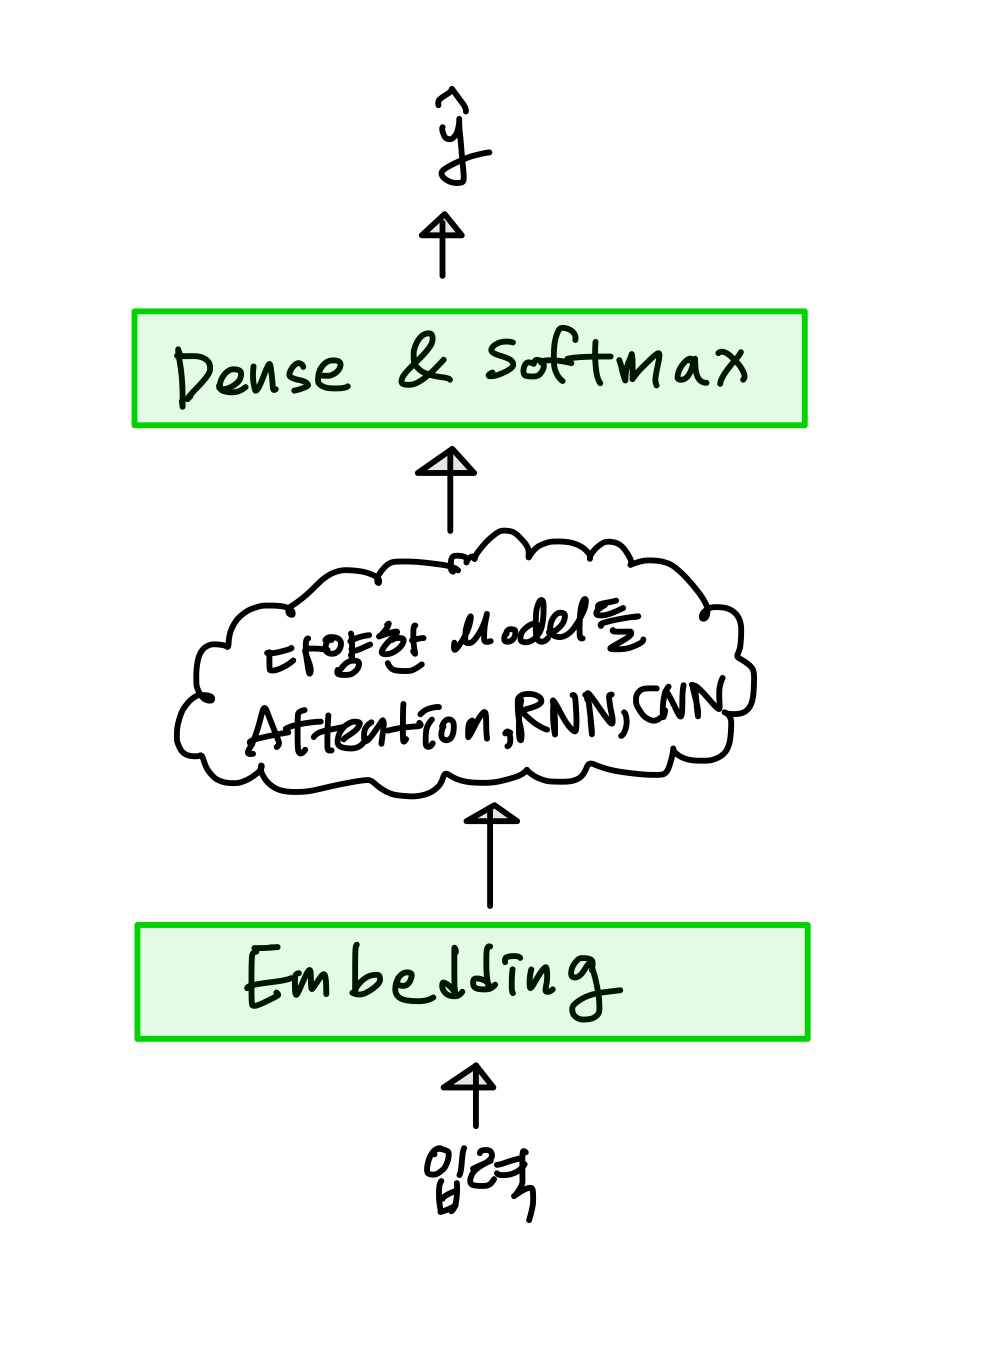 ŷ
Dense & Softmax
다양한 Model들
Attention, RNN, CNN
Embedding
입력